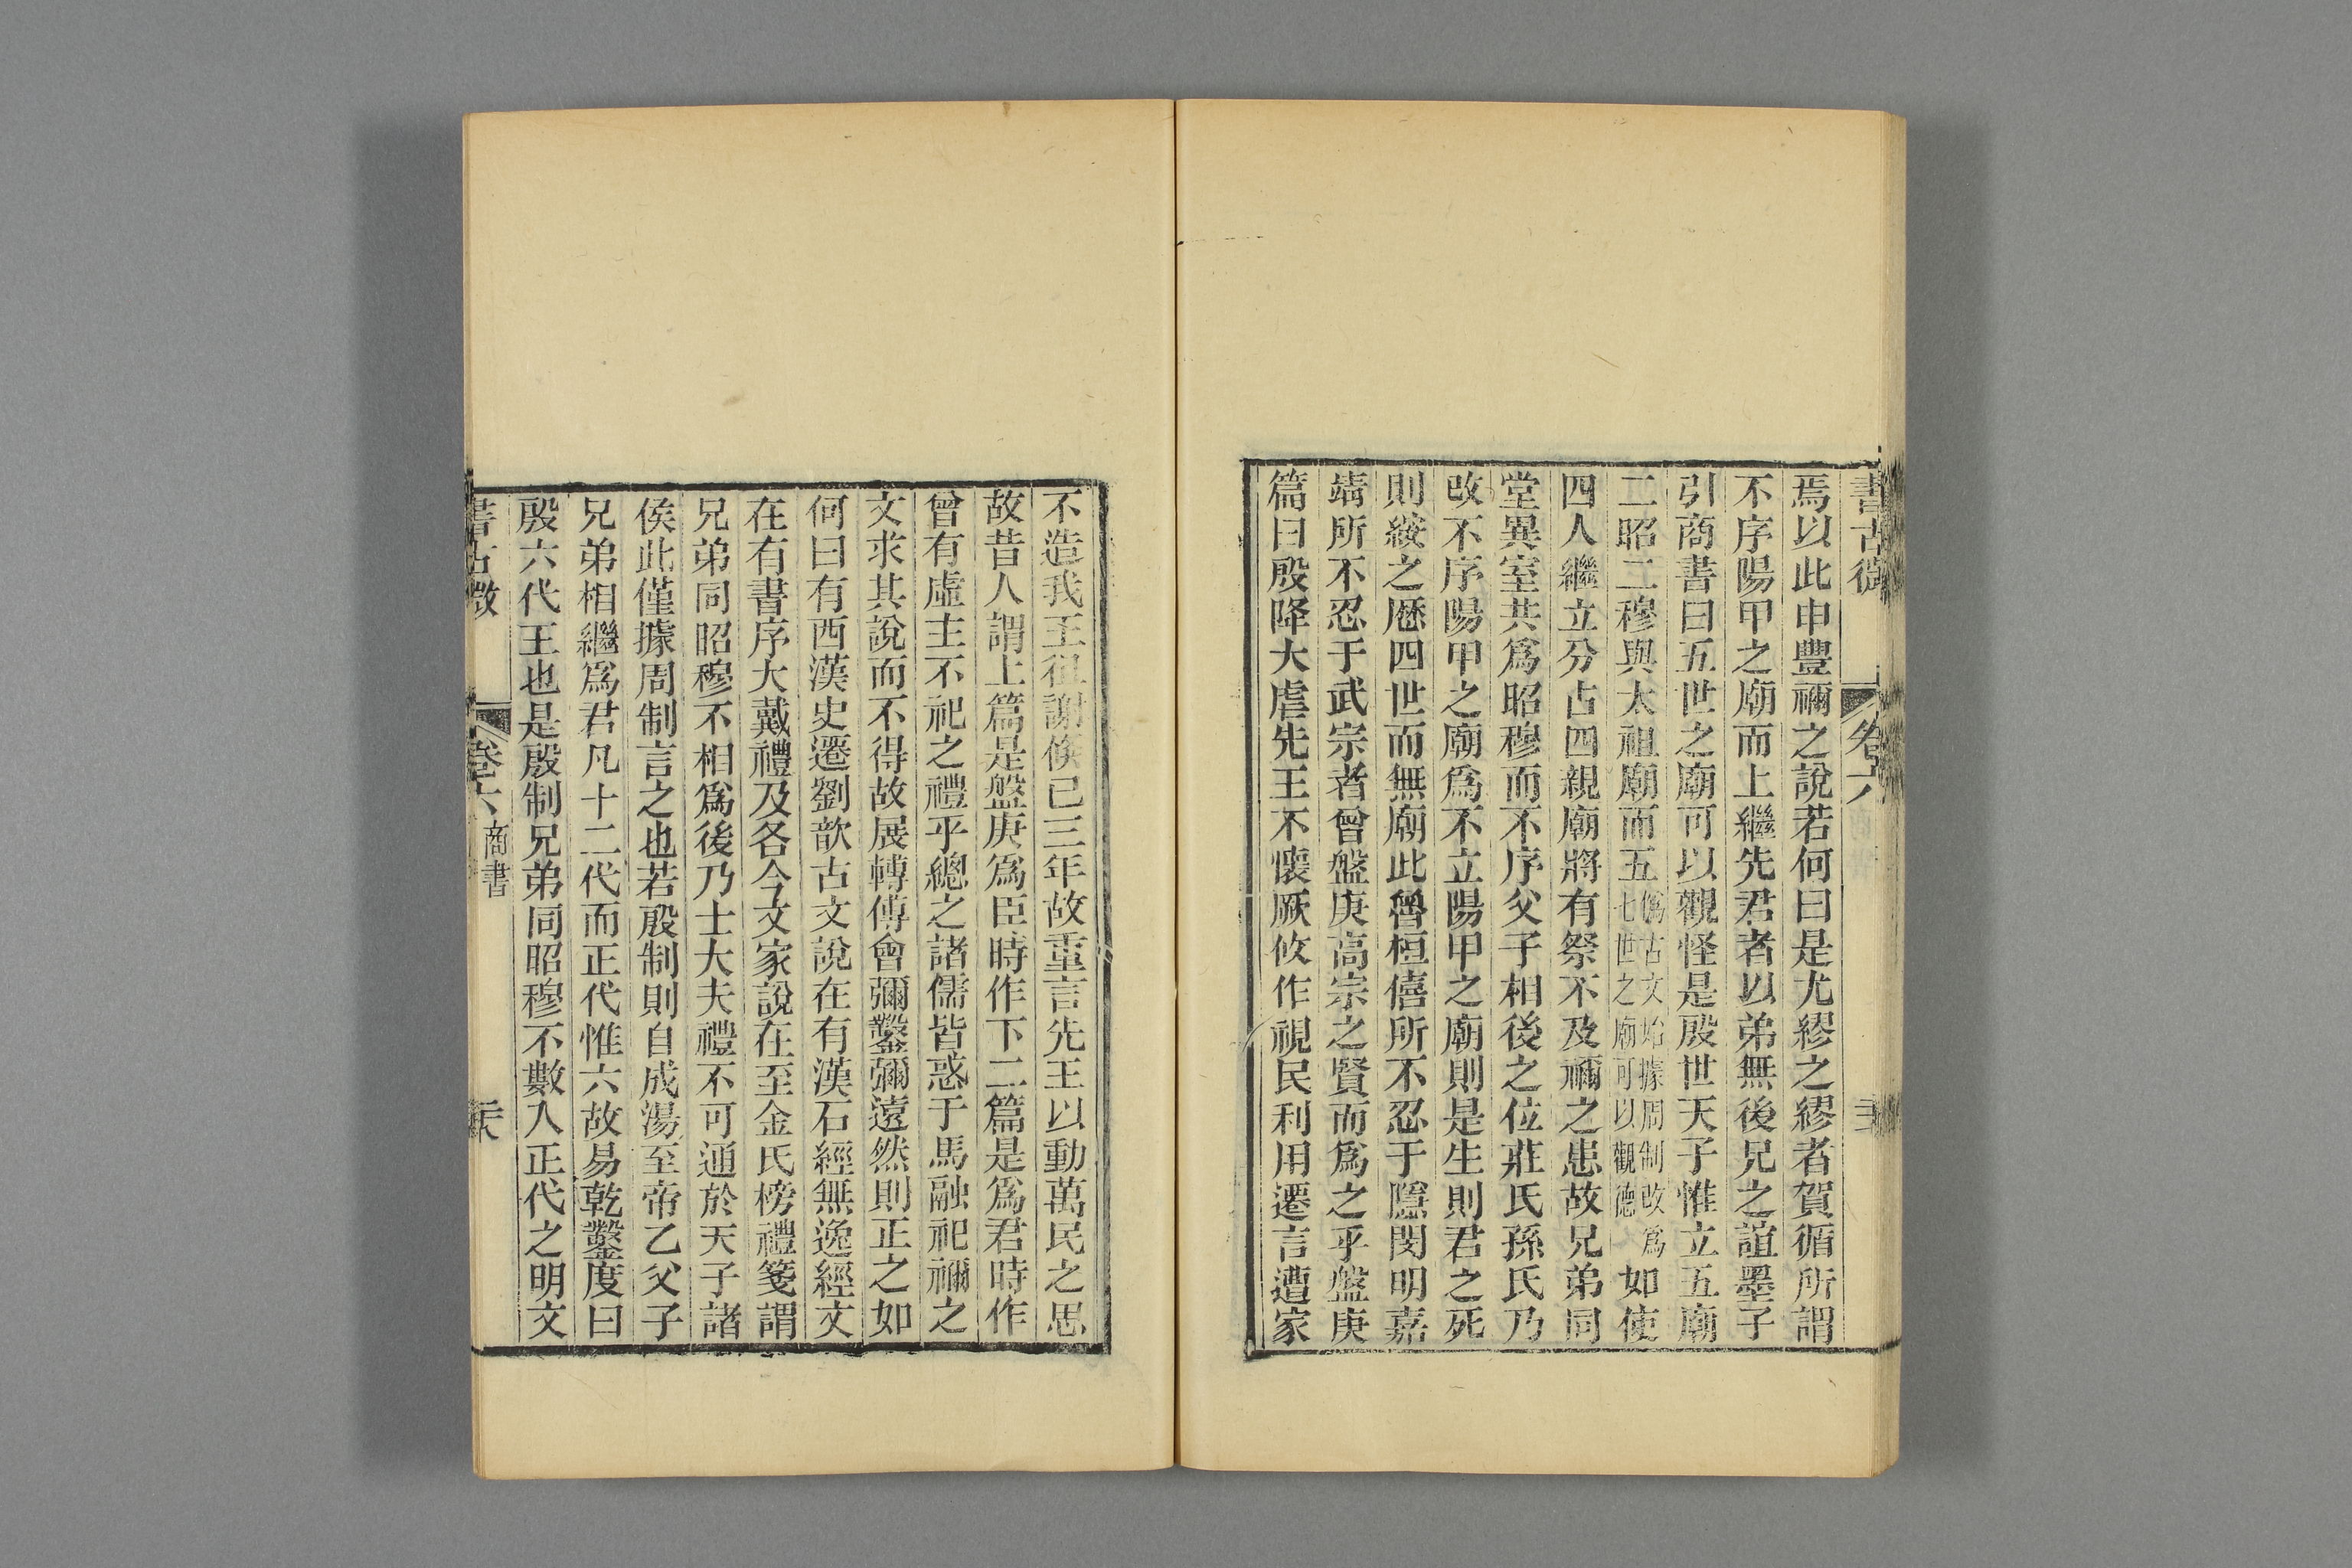 書古微 卷六
焉以此申豐禰之說若何曰是尤繆之繆者賀循所謂
不序陽甲之廟而上繼先君者以弟無後兄之誼墨子
引商書曰五世之廟可以觀怪是殷世天子惟立五廟
二昭二穆與太祖廟而五僞古文始據周制改爲七世之廟可以觀德如使
四人繼立分占四親廟將有祭不及禰之患故兄弟同
堂異室共爲昭穆而不序父子相後之位莊氏孫氏乃
改不序陽甲之廟爲不立陽甲之廟則是生則君之死
則綏之厯四世而無廟此魯桓僖所不忍于隱閔明嘉
靖所不忍于武宗者曾盤庚高宗之賢而爲之乎盤庚
篇曰殷降大虐先王不懷厥攸作視民利用遷言遭家
不造我王徂謝倐已三年故重言先王以動萬民之思
故昔人謂上篇是盤庚爲臣時作下二篇是爲君時作
曾有虛主不祀之禮乎總之諸儒皆惑于馬融祀禰之
文求其說而不得故展轉傅會彌鑿彌遠然則正之如
何曰有西漢史遷劉歆古文說在有漢石經無逸經文
在有書序大戴禮及各今文家說在至金氏榜禮箋謂
兄弟同昭穆不相爲後乃士大夫禮不可通於天子諸
侯此僅據周制言之也若殷制則自成湯至帝乙父子
兄弟相繼爲君凡十二代而正代惟六故易乾鑿度曰
殷六代王也是殷制兄弟同昭穆不數入正代之明文
書古微 卷六 商書